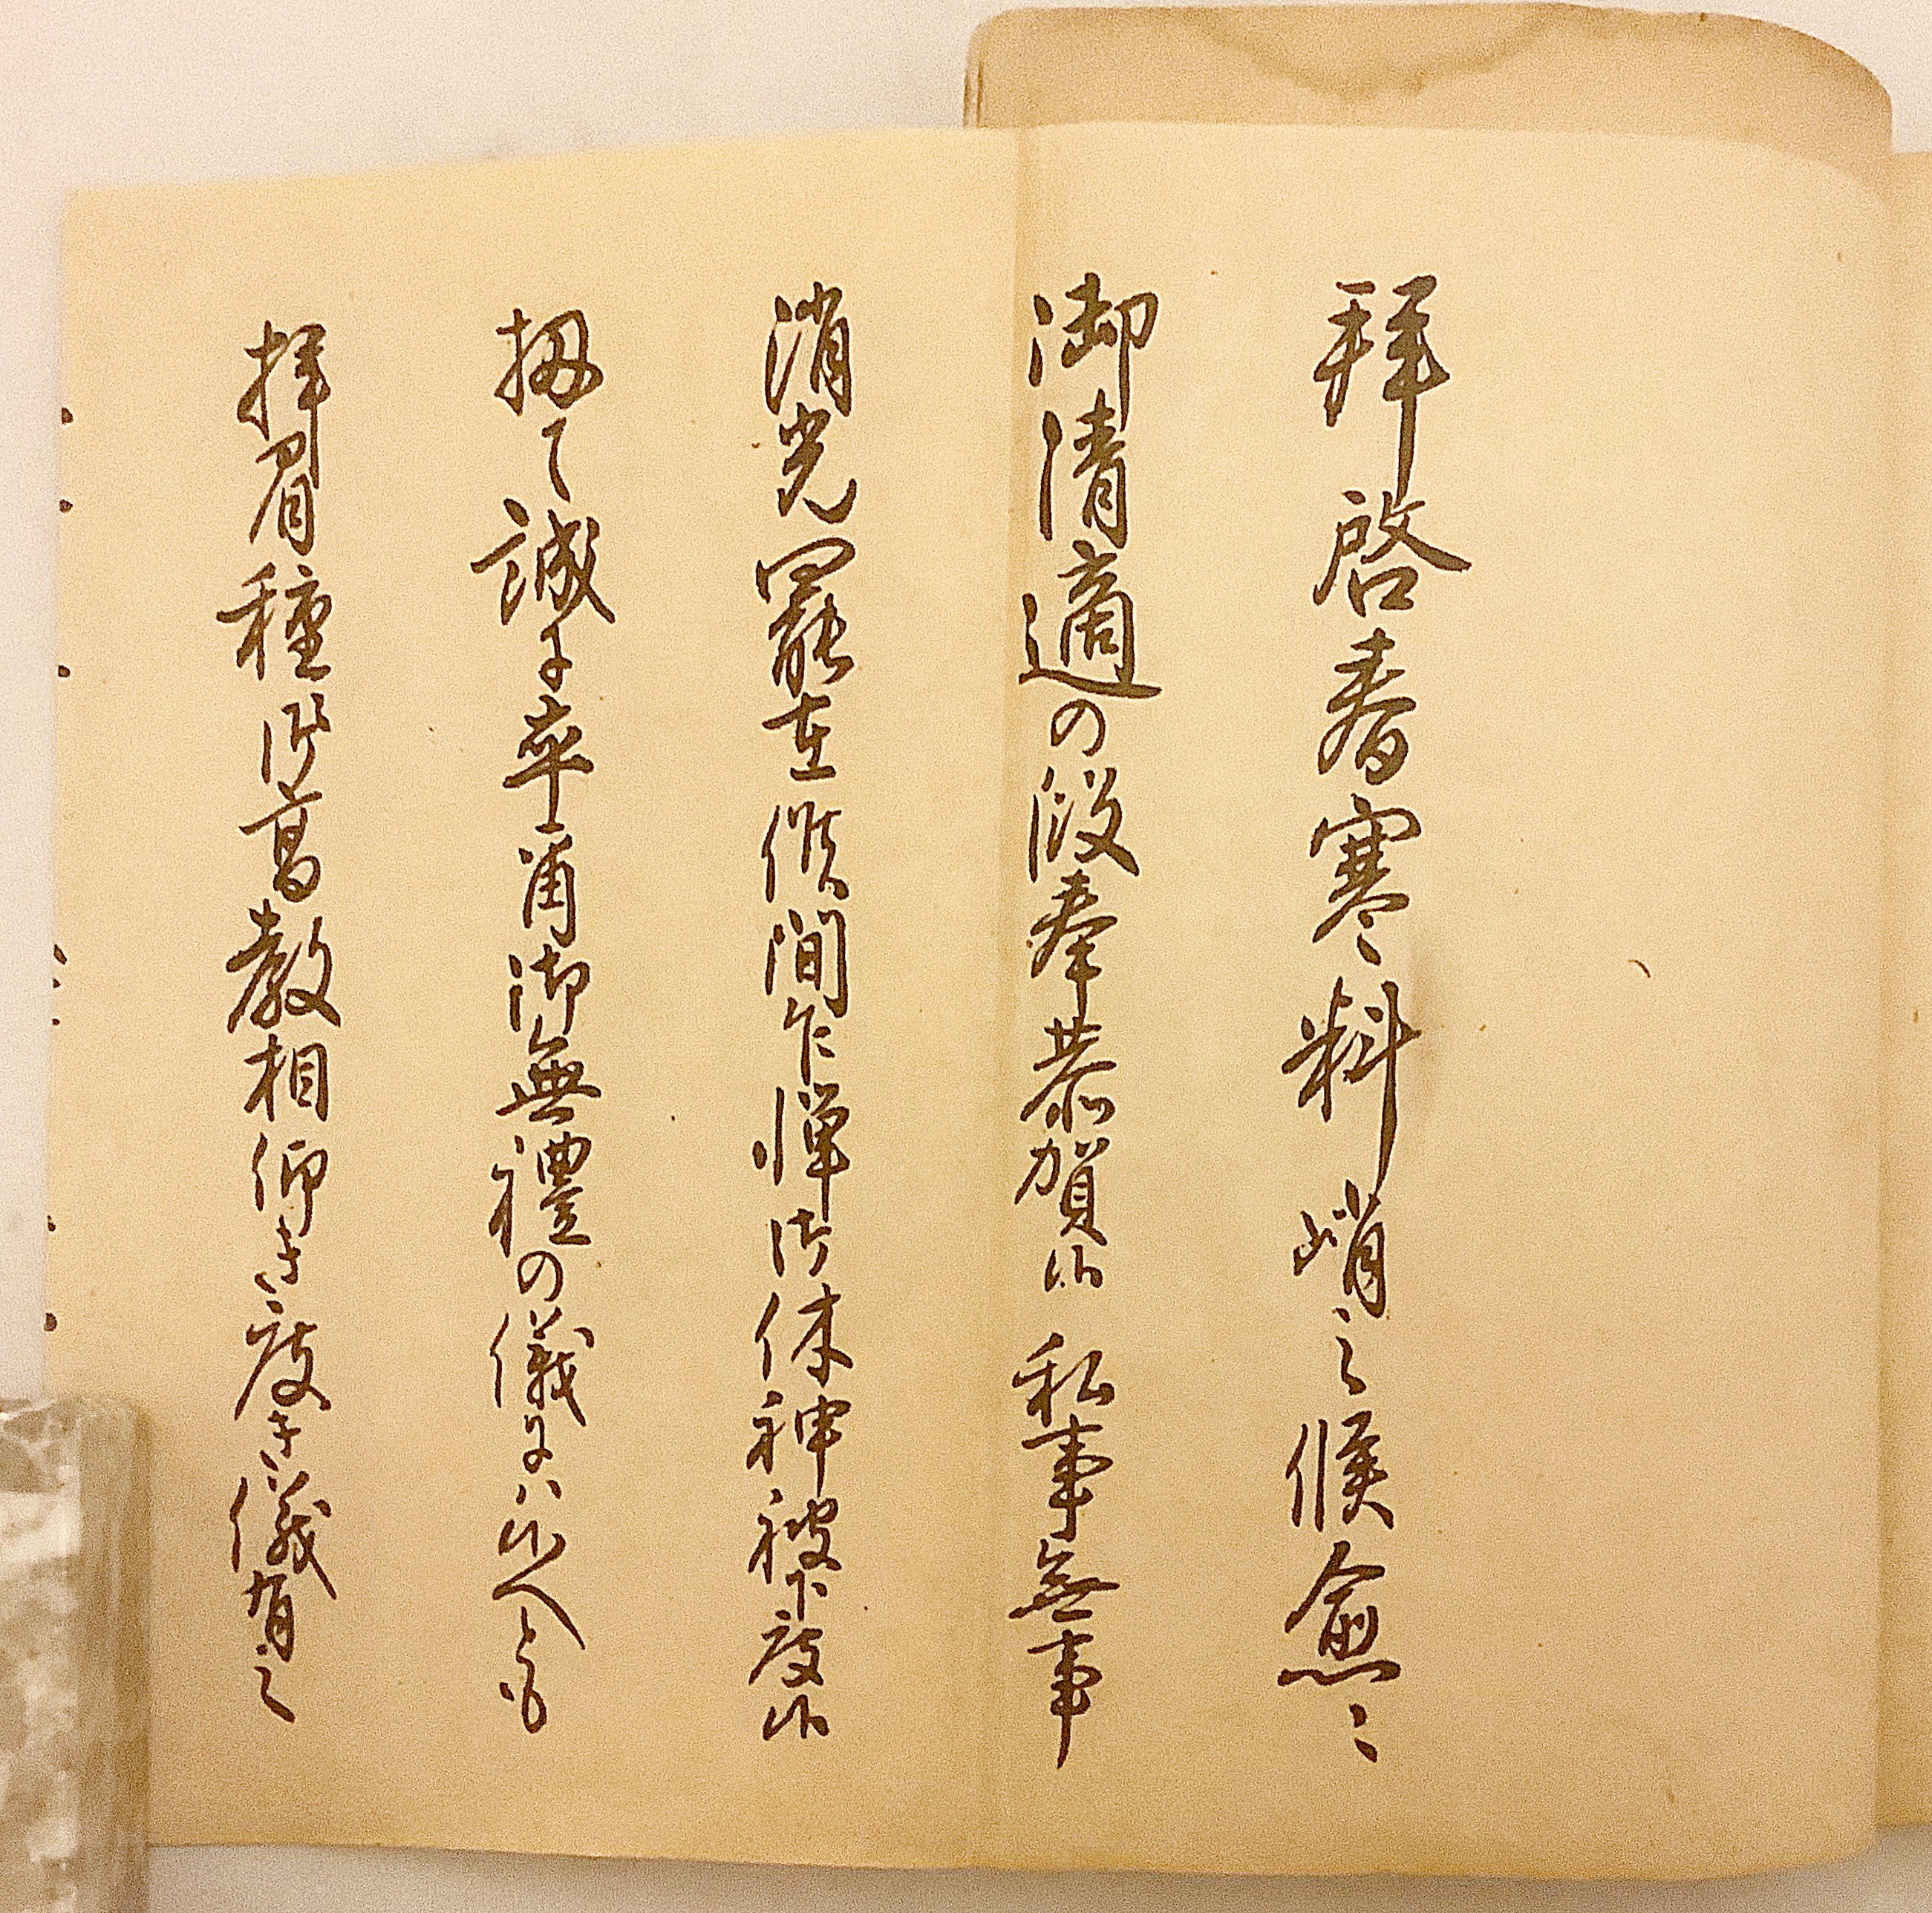 拜啓春寒料峭之候愈々
御清適の段奉恭賀候 私事無事
消光罷在候間乍憚御休神被下度候
扨て誠に卒爾御無禮の儀にハ候へとも
拝眉種々御高教相仰き度き儀有之